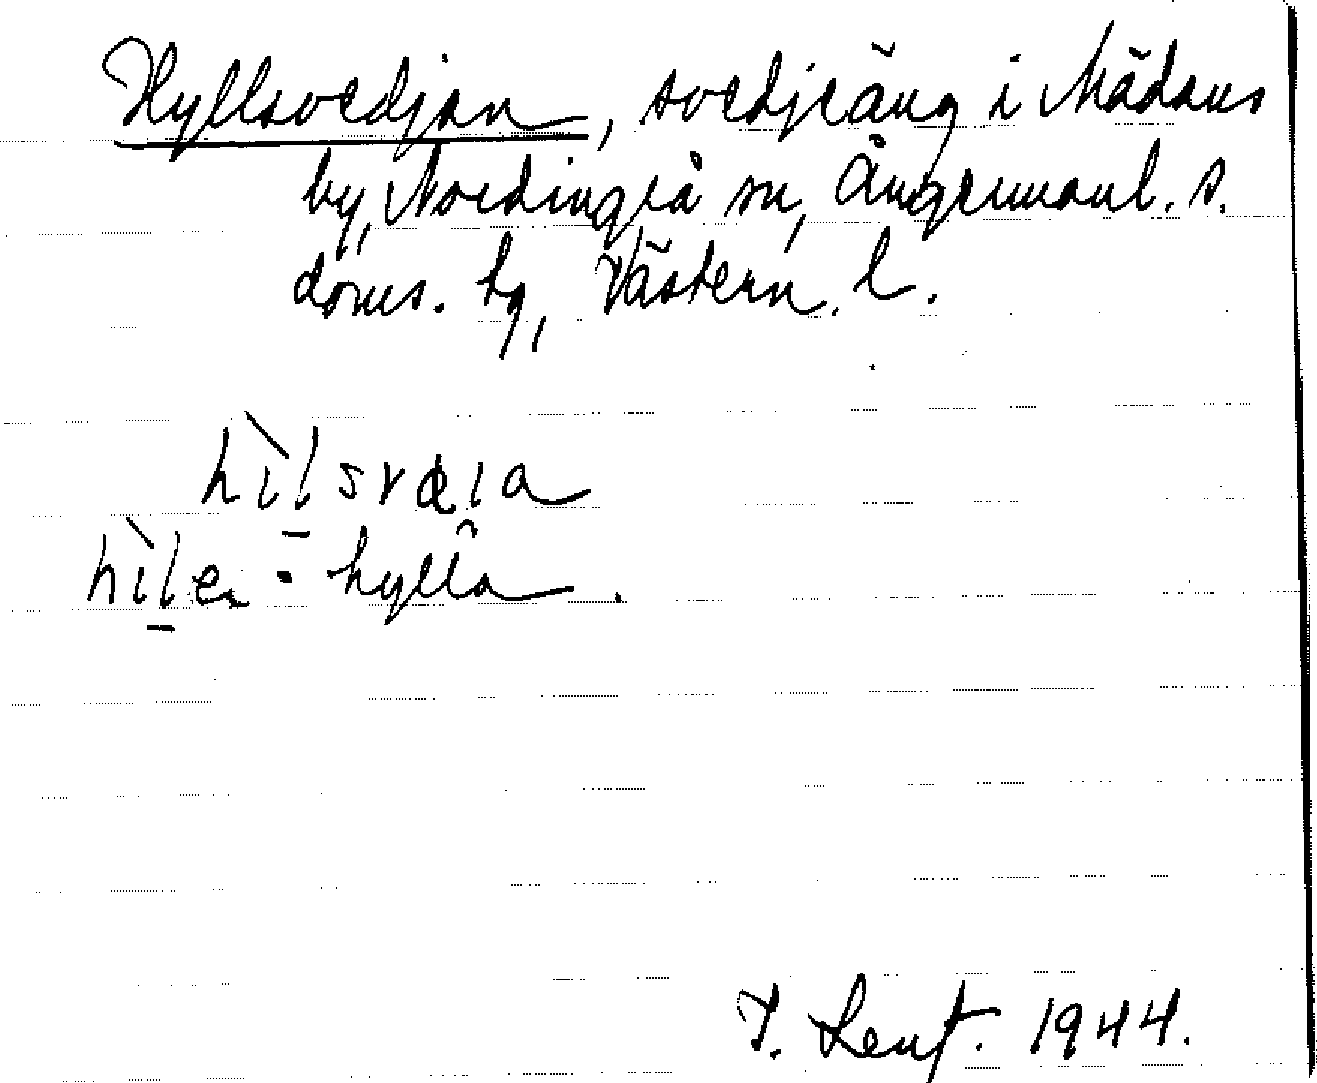 Hyllsvedjan, svedjeäng i Mädans
by, Nordingrå sn, Ångermanl. s.
doms. tg, Västern. l.
hìlsvæıa
hìle - hylla.
1944.